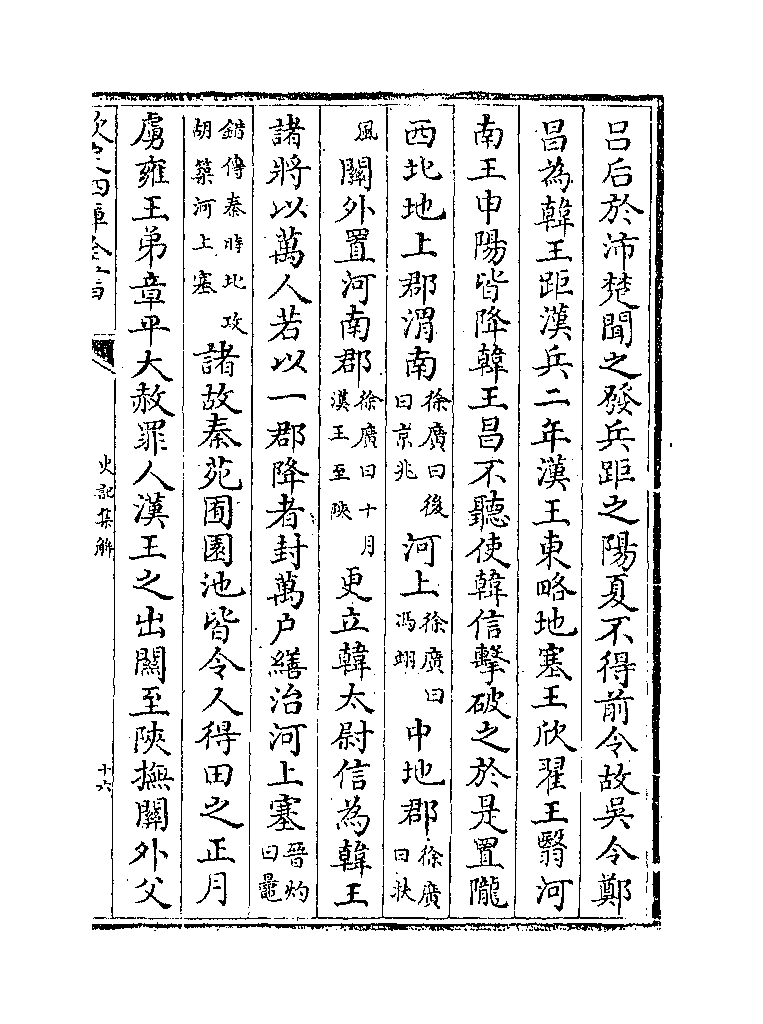 吕后於沛楚聞之發兵距之陽夏不得前令故吳令鄭
昌為韓王距漢兵二年漢王東略地塞王欣翟王翳河
南王申陽皆降韓王昌不聽使韓信擊破之於是置隴
西北地上郡渭南徐廣曰後曰京兆河上徐廣曰馮翊中地郡徐廣曰扶
風關外置河南郡徐廣曰十月漢王至陜更立韓太尉信為韓王
諸將以萬人若以一郡降者封萬戶繕治河上塞晉灼曰鼂
錯傳秦時北攻胡築河上塞諸故秦苑囿園池皆令人得田之正月
虜雍王弟章平大赦罪人漢王之出關至陜撫關外父
欽定四庫全書
史記集解
十六